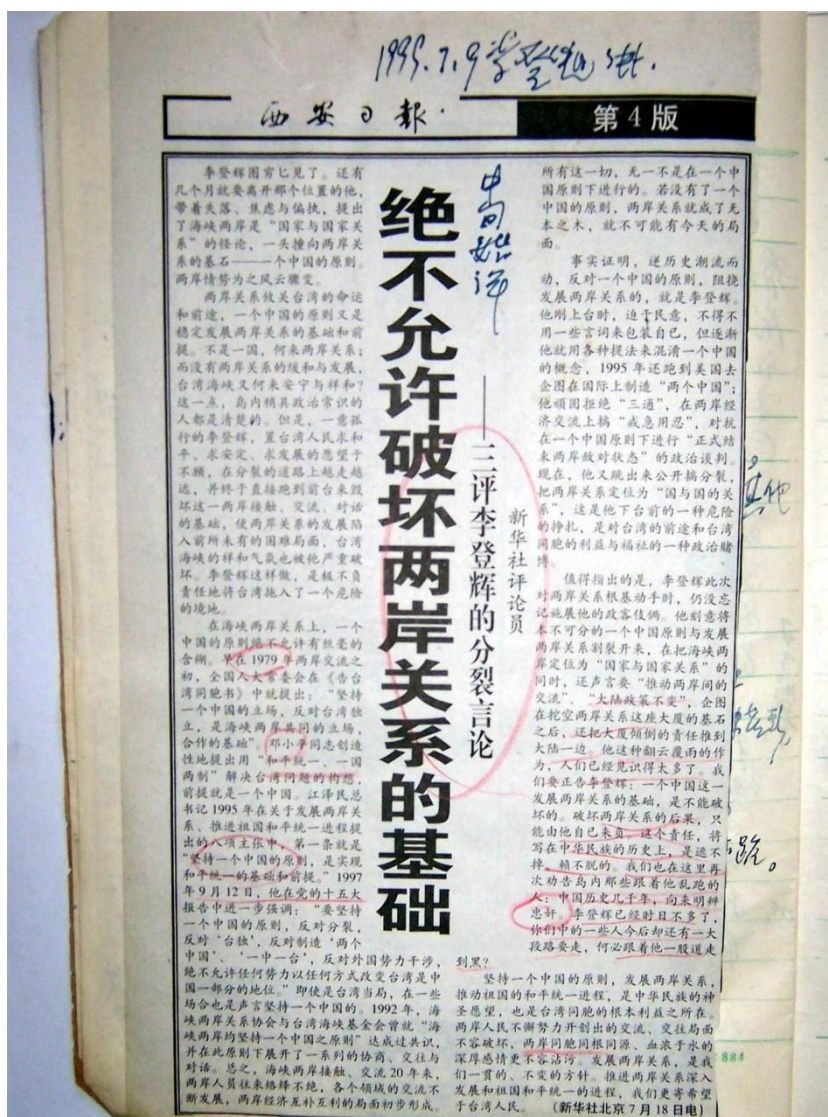 1999.7.9
西安日報
第4版
绝不允许破坏两岸关系的基础
——三评李登辉的分裂言论
新华社评论员
李登辉图穷匕见了。还有
几个月就要离开那个位置的他，
带着失落、焦虑与偏执，提出
了海峡两岸是“国家与国家关
系”的怪论，一头撞向两岸关
系的基石——一个中国的原则。
两岸情势为之风云骤变。
两岸关系攸关台湾的命运
和前途，一个中国的原则又是
稳定发展两岸关系的基础和前
提。不是一国，何来两岸关系；
而没有两岸关系的缓和与发展，
台湾海峡又何来安宁与祥和？
这一点，岛内稍具政治常识的
人都是清楚的。但是，一意孤
行的李登辉，置台湾人民求和
平、求安定、求发展的愿望于
不顾，在分裂的道路上越走越
远，并终于直接跑到前台来毁
坏这一两岸接触、交流、对话
的基础，使两岸关系的发展陷
入前所未有的困难局面，台湾
海峡的祥和气氛也被他严重破
坏。李登辉这样做，是极不负
责任地将台湾拖入了一个危险
的境地。
在海峡两岸关系上，一个
中国的原则绝不允许有丝毫的
含糊。早在1979年两岸交流之
初，全国人大常委会在《告台
湾同胞书》中就提出：“坚持
一个中国的立场，反对台湾独
立，是海峡两岸共同的立场，
合作的基础”邓小平同志创造
性地提出用“和平统一、一国
两制”解决台湾问题的构想，
前提就是一个中国。江泽民总
书记1995年在关于发展两岸关
系、推进祖国和平统一进程提
出的八项主张中，第一条就是
“坚持一个中国的原则，是实现
和平统一的基础和前提。”1997
年9月12日，他在党的十五大
报告中进一步强调：“要坚持
一个中国的原则，反对分裂，
反对‘台独’，反对制造‘两个
中国’、‘一中一台’，反对外国势力干涉，
绝不允许任何势力以任何方式改变台湾是中
国一部分的地位。”即使是台湾当局，在一些
场合也是声言坚持一个中国的。1992年，海
峡两岸关系协会与台湾海峡基金会曾就“海
峡两岸均坚持一个中国之原则”达成过共识，
并在此原则下展开了一系列的协商、交往与
对话。总之，海峡两岸接触、交流20年来，
两岸人员往来络绎不绝，各个领域的交流不
断发展，两岸经济互补互利的局面初步形成。
所有这一切，无一不是在一个中
国原则下进行的。若没有了一个
中国的原则，两岸关系就成了无
本之木，就不可能有今天的局
面。
事实证明，逆历史潮流而
动，反对一个中国的原则，阻挠
发展两岸关系的，就是李登辉。
他刚上台时，迫于民意，不得不
用一些言词来包装自己，但逐渐
他就用各种提法来混淆一个中国
的概念，1995年还跑到美国去
企图在国际上制造“两个中国”；
他顽固拒绝“三通”，在两岸经
济交流上搞“戒急用忍”，对抗
在一个中国原则下进行“正式结
束两岸敌对状态”的政治谈判。
现在，他又跳出来公开搞分裂，
把两岸关系定位为“国与国的关
系”，这是他下台前的一种危险
的挣扎，是对台湾的前途和台湾
同胞的利益与福祉的一种政治赌
博。
值得指出的是，李登辉此次
对两岸关系根基动手时，仍没忘
记施展他的政客伎俩。他刻意将
本不可分的一个中国原则与发展
两岸关系割裂开来，在把海峡两
岸定位为“国家与国家关系”的
同时，还声言要“推动两岸间的
交流”、“大陆政策不变”，企图
在挖空两岸关系这座大厦的基石
之后，还把大厦倾倒的责任推到
大陆一边。他这种翻云覆雨的作
为，人们已经见识得太多了。我
们要正告李登辉：一个中国这一
发展两岸关系的基础，是不能破
坏的。破坏两岸关系的后果，只
能由他自己来负。这个责任，将
写在中华民族的历史上，是逃不
掉、赖不脱的。我们也在这里再
次劝告岛内那些跟着他乱跑的
人：中国历史几千年，向来明辨
忠奸。李登辉已经时日不多了，
你们中的一些人今后却还有一大
段路要走，何必跟着他一股道走
到黑？
坚持一个中国的原则，发展两岸关系，
推动祖国的和平统一进程，是中华民族的神
圣愿望，也是台湾同胞的根本利益之所在。
两岸人民不懈努力开创出的交流、交往局面
不容破坏，两岸同胞同根同源、血浓于水的
深厚感情更不容沾污。发展两岸关系，是我
们一贯的、不变的方针。推进两岸关系深入
发展和祖国和平统一的进程，我们更寄希望
于台湾人民。（新华社北京7月18日电）
其他